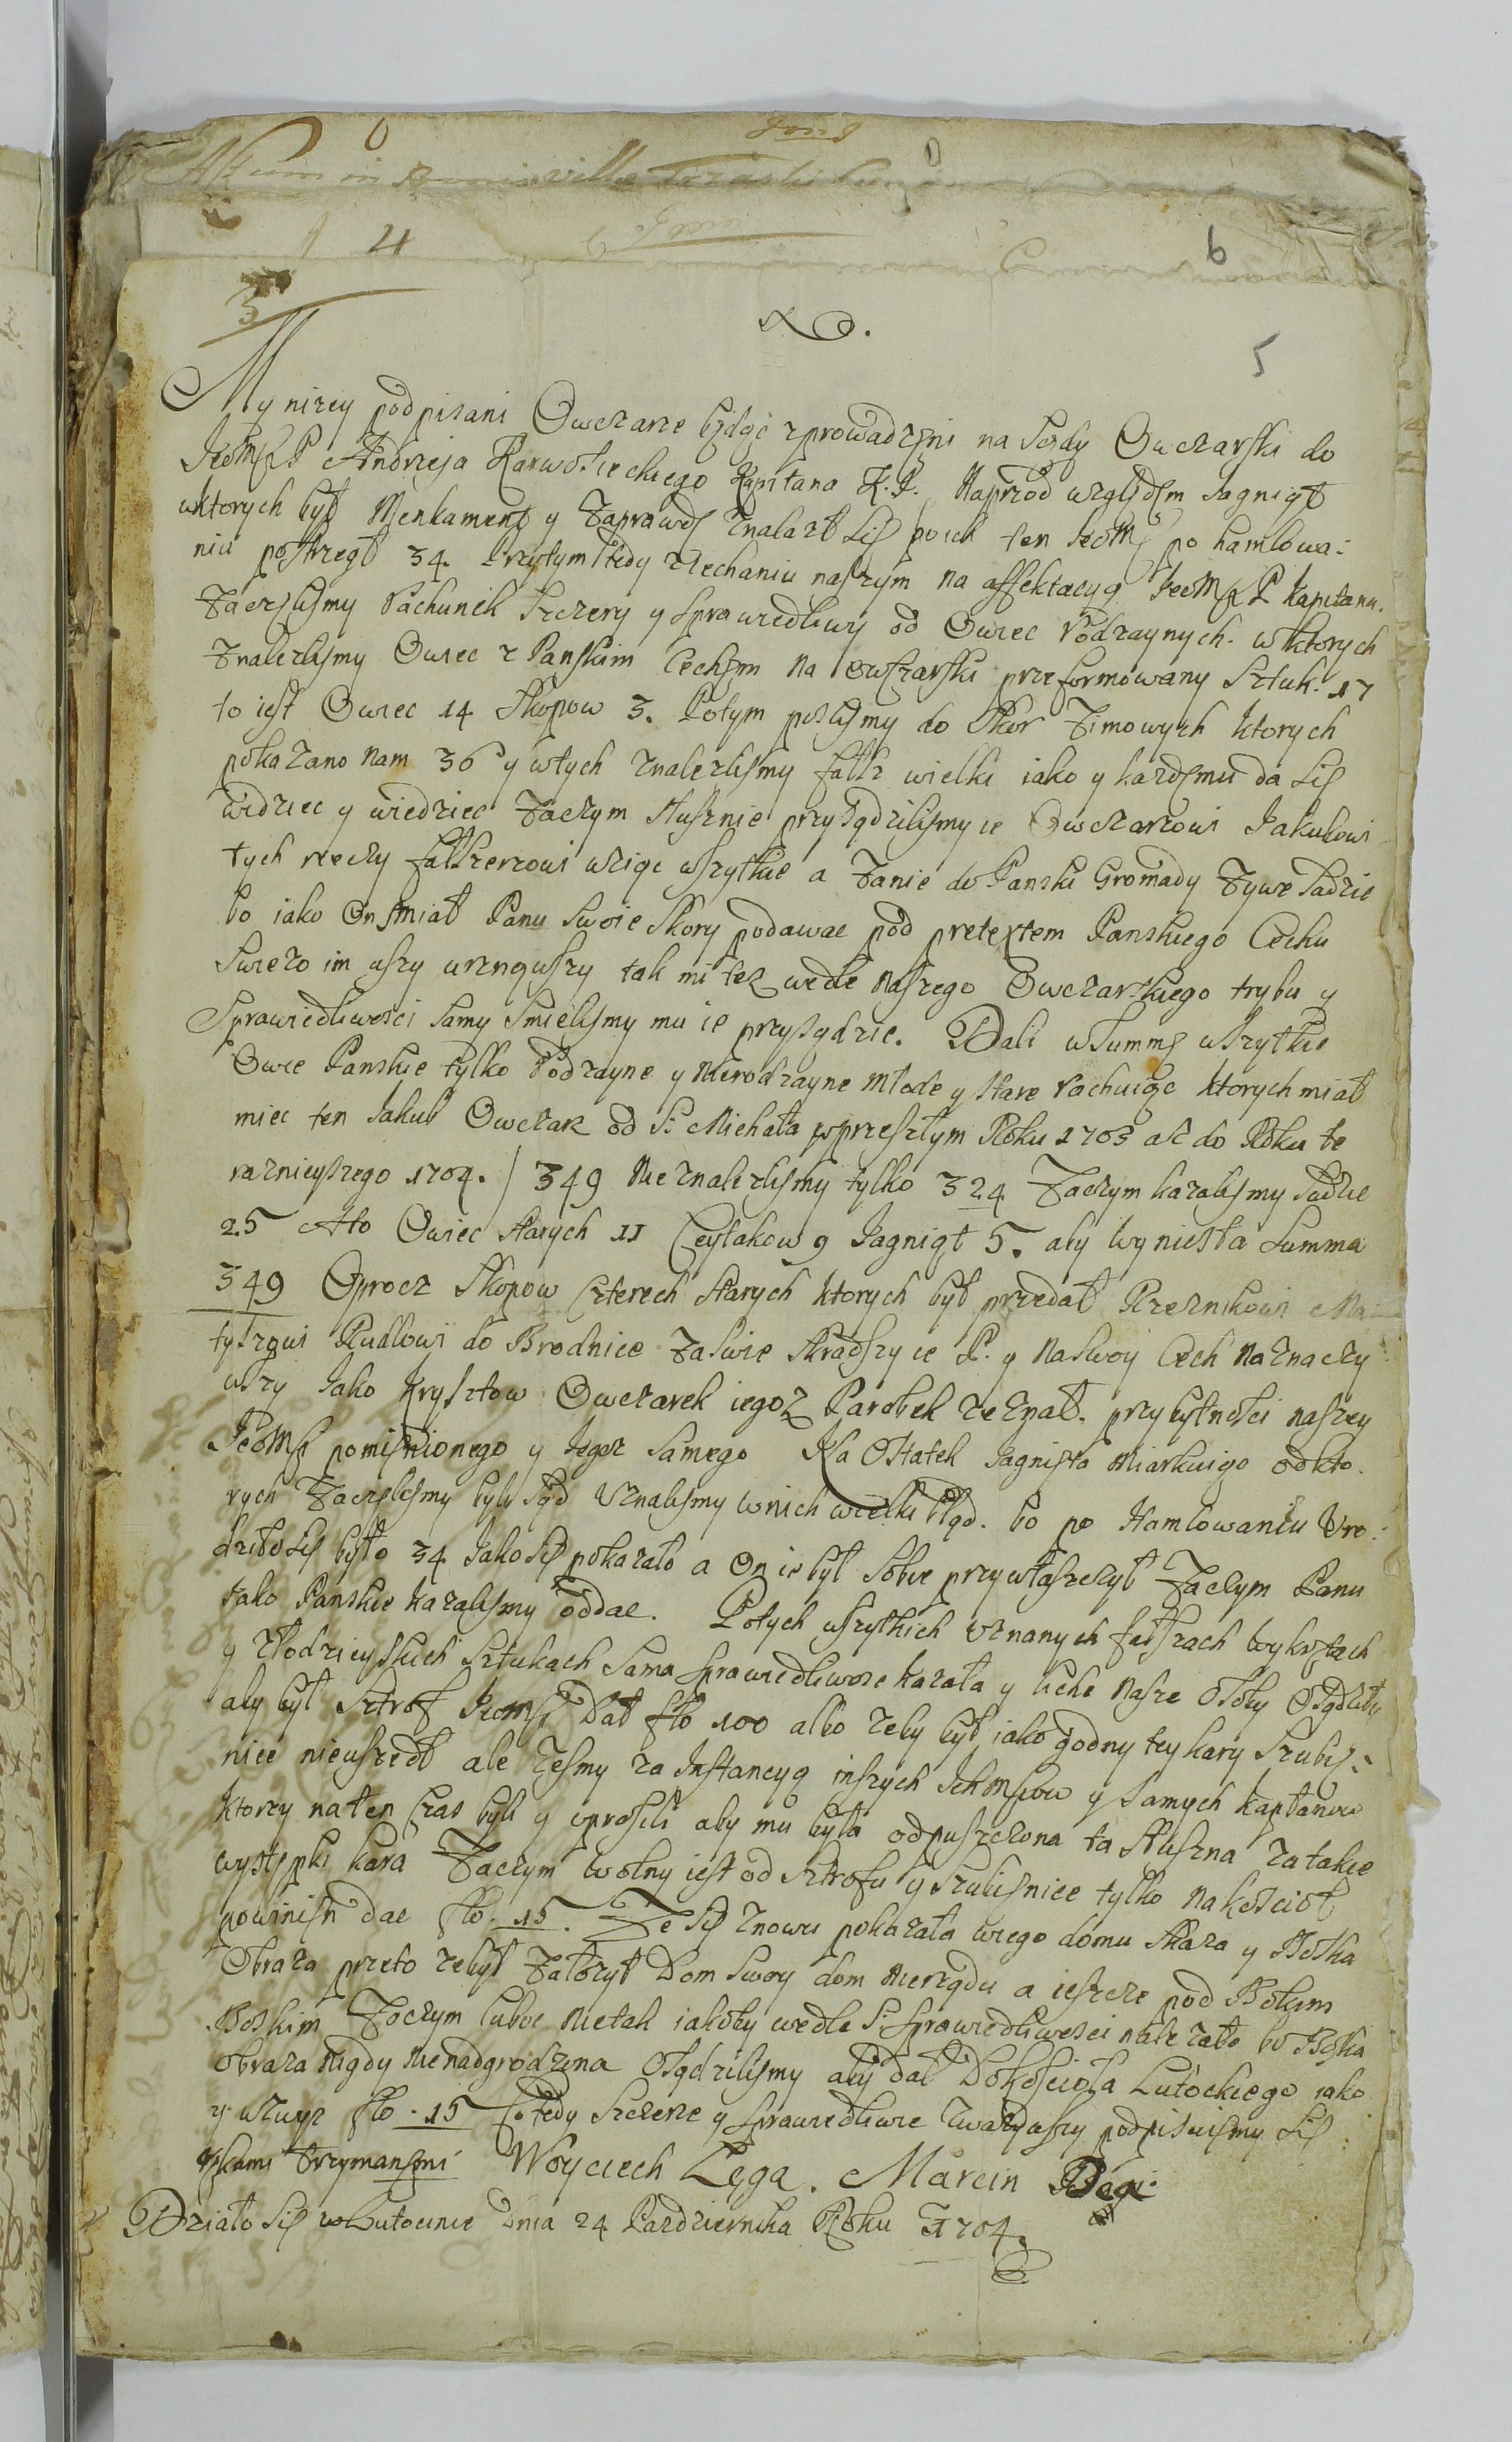 4
6
3
5
My nizey podpisani Owczarze będąc zprowadzeni na Sądy Owczarski do
JeoMP Andrzeja Karwosieckiego Kapitana K. P. Naprzod względem Jagniąt
wktorych był Menkament y Zaprawdę Znalazł się poich ten JeoMć po hamlowa:
niu postrzegł 34. Przytym tedy zJechaniu naszym na affektacyą JeoMP Kapitana.
Zaczęlismy Rachunek Szczery y sprawiedliwy od Owiec Rodzaynych. wktorych
Znalezlismy Owiec z Panskim Cechem na owczarski przeformowany Sztuk. 17
to iest Owiec 14 Skopow 3. Potym poszlismy do Skor Zimowych ktorych
pokazano nam 36 y wtych znalezlismy fałsz wielki iako y kazdemu da się
widziec y wiedziec Zaczym słusznie przysądzilismy ie Owczarzowi Jakubowi
tych rzeczy fałszerzowi wziąc wszytkie a Zanie do Panski Gromady Zywe Sadzic
bo iako On smiał Panu Swoie Skory podawac pod pretextem Panskiego Cechu
Swiezo im uszy urznąwszy tak mi tez wedle naszego Owczarskiego trybu y
Sprawiedliwosci Samy Smielismy mu ie przysądzic. Dali wSummę wszytkie
Owce Panskie tylko Rodzayne y Nierodzayne Młode y Stare rachuiąc ktorych miał
miec ten Jakub Owczarz od S: Michała wprzeszłym Roku 1703 asz do Roku te
raznieyszego 1704. / 349 Nie znalezlismy tylko 324 Zaczym kazalismy Sadzic
25 Ato Owiec Starych 11 Ceytakow 9 Jagniąt 5. aby wyniesła Summa
349 Oprocz Skopow Czterech Starych ktorych był przedał Rzeznikowi Ma
tyszowi Rudlowi do Brodnice Zaswie Skradszy ie P. y naswoy Cech naznaczy:
wszy Jako Krysztow Owczarek iegoz Parobek zeznał. przybytnosci naszey
JeoMP pomienionego y Jegoz Samego Na Ostatek Jagnięta Miarkuigo odkto
rych Zaczelismy były Sąd Uznalismy wnich wielki błąd. bo po Hamlowaniu Uro:
dziłosię było 34 Jakosię pokazało a On ie był Sobie przywłaszczył Zaczym Panu
Jako Panskie kazalismy oddac. Potych wszytkich uznanych fałszach wykrętach
y złodzieyskich Sztukach Sama Sprawiedliwosc kazała y liche nasze Osoby Osądziły
aby był Sztrof JeoMP Dał fło 100 albo zeby był iako godny tey kary Szubię:
nice nieuszedł ale zesmy za Instancyą inszych Ichmsciow y Samych Kapłanow
ktorzy naten Czas byli y uprosili aby mu była odpuszczona ta Słuszna zatakie
występki kara Zaczym wolny iest od Sztrofu y Szubięnice tylko na kosciół
powinięn dac fło. 15. Ze się znowu pokazała wiego domu Skaza y Boska
Obraza przeto zebył Załozył Dom Swoy dom Nierządu a ieszcze pod Bokiem
Boskim Zoczym luboc Nietak iakoby wedle S: Sprawiedliwosci nalezało bo Boska
obraza Nigdy nienadgrodzona Osądzilismy aby dał Dokosciola Lutockiego iako
y wzwyz fło. 15 Co tedy Szczerze y Sprawiedliwie zwazywszy podpisuiemy się
rękami trzymanemi Woyciech Lęga. Marcin
Działo się wLutocinie Dnia 24 Pazdziernika Roku 1704.